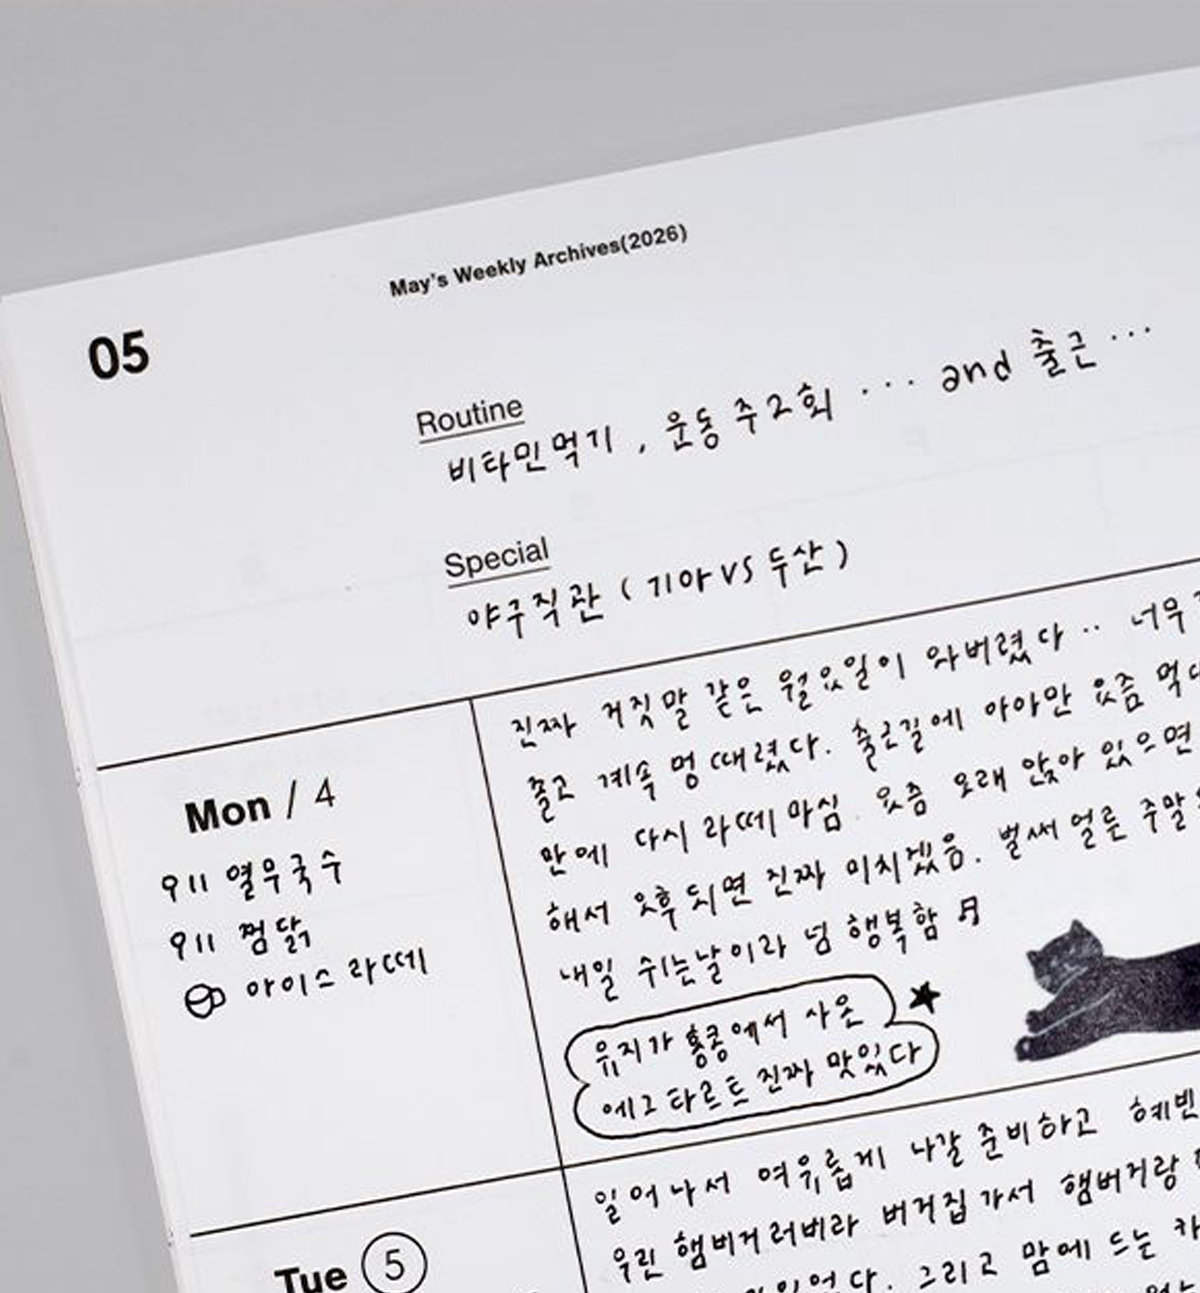 May's Weekly Archives(2026)
05
Routine
비타민먹기, 운동 주2회 ··· and 출근 ···
Special
야구직관 (기아 vs 두산)
Mon / 4
열무국수
찜닭
아이스 라떼
진짜 거짓말 같은 월요일이 와버렸다·· 너무
졸고 계속 멍 때렸다. 출근길에 아아만 요즘 먹다
만에 다시 라떼 마심. 요즘 오래 앉아 있으면
해서 오후 되면 진짜 미치겠음. 벌써 얼른 주말
내일 쉬는날이라 넘 행복함 ♬
유지가 홍콩에서 사온 ★
에그타르트 진짜 맛있다
Tue 5
일어나서 여유롭게 나갈 준비하고 혜빈
우린 햄버거러버라 버거집 가서 햄버거랑
맛있었다. 그리고 맘에 드는 카